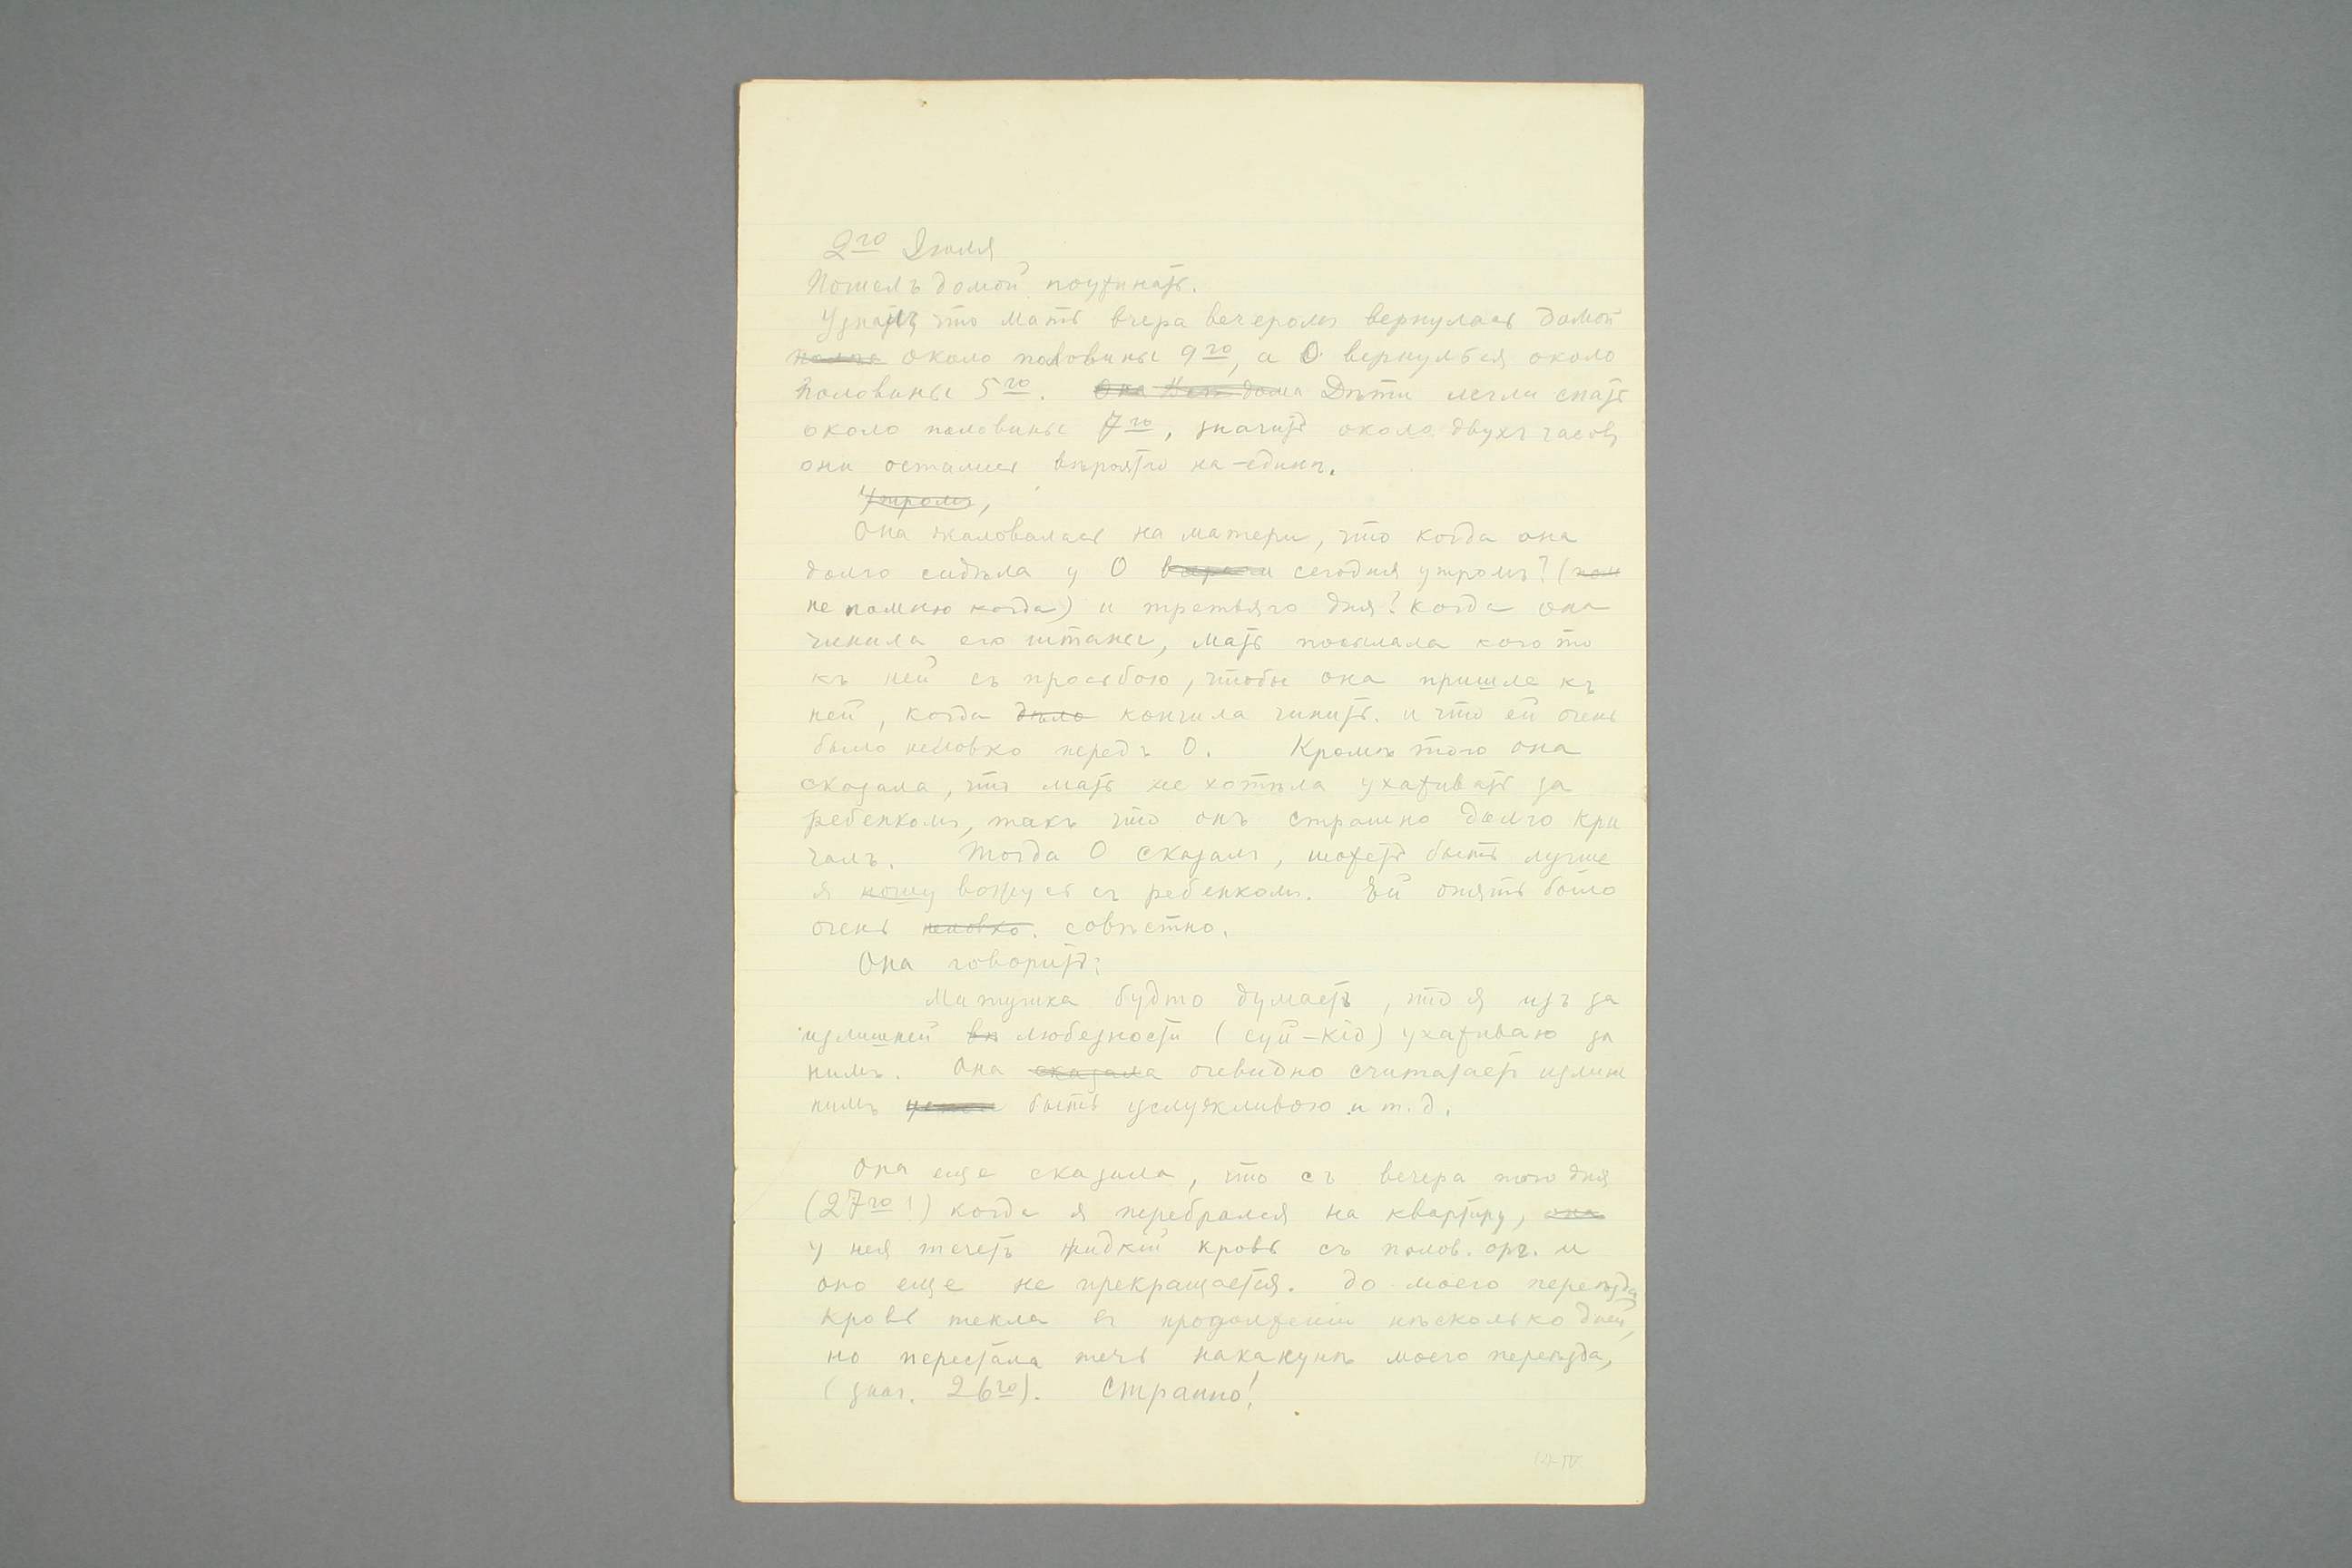 2го Iюля
Пошелъ домой поужинать.
Узналъ что мать вчера вечеромъ вернулась домой
около половины 9го, а О вернулся около
половины 5го. Она дома Дѣти легли спать
около половины 7го, значитъ около двухъ часовъ
они остались вѣроятно на-единѣ.
Утромъ,
Она жаловалась на матери, что когда она
долго сидѣла у О сегодня утромъ? (
не помню когда) и третьяго дня? когда она
чинила его штаны, мать посылала кого то
къ ней съ просьбою, чтобы она пришла къ
ней, когда дѣло кончила чинить. и что ей очень
было неловко передъ О. Кромѣ того она
сказала, что мать не хотѣла ухаживать за
ребенкомъ, такъ что онъ страшно долго кри
чалъ. Тогда О сказалъ, можетъ быть лучше
я вожусь съ ребенкомъ. Ей опять было
очень неловко. совѣстно.
Она говоритъ:
Матушка будто думаетъ, что я изъ за
излишней любезности (суй-кiо) ухаживаю за
нимъ. Она сказала очевидно считаетъ излиш
нимъ быть услужливою и т.д.
Она еще сказала, что съ вечера того дня
(27го!) когда я перебрался на квартиру, она
у нея течетъ жидкiй кровь съ полов. орг. и
оно еще не прекращается. до моего переѣзда
кровь текла въ продолженiи нѣсколько дней,
но перестала течь наканунѣ моего переѣзда,
(знач. 26го). Странно!